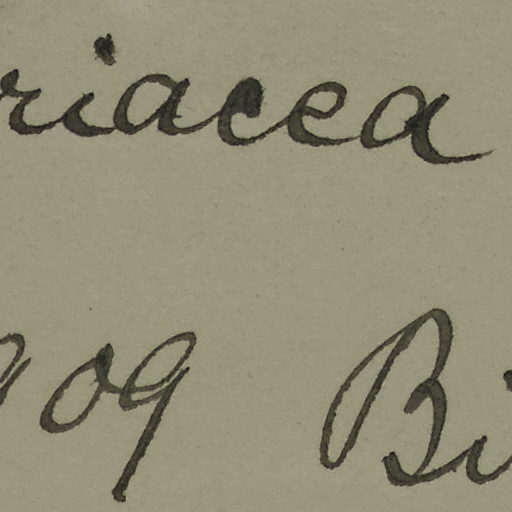 riacea
909 Bi